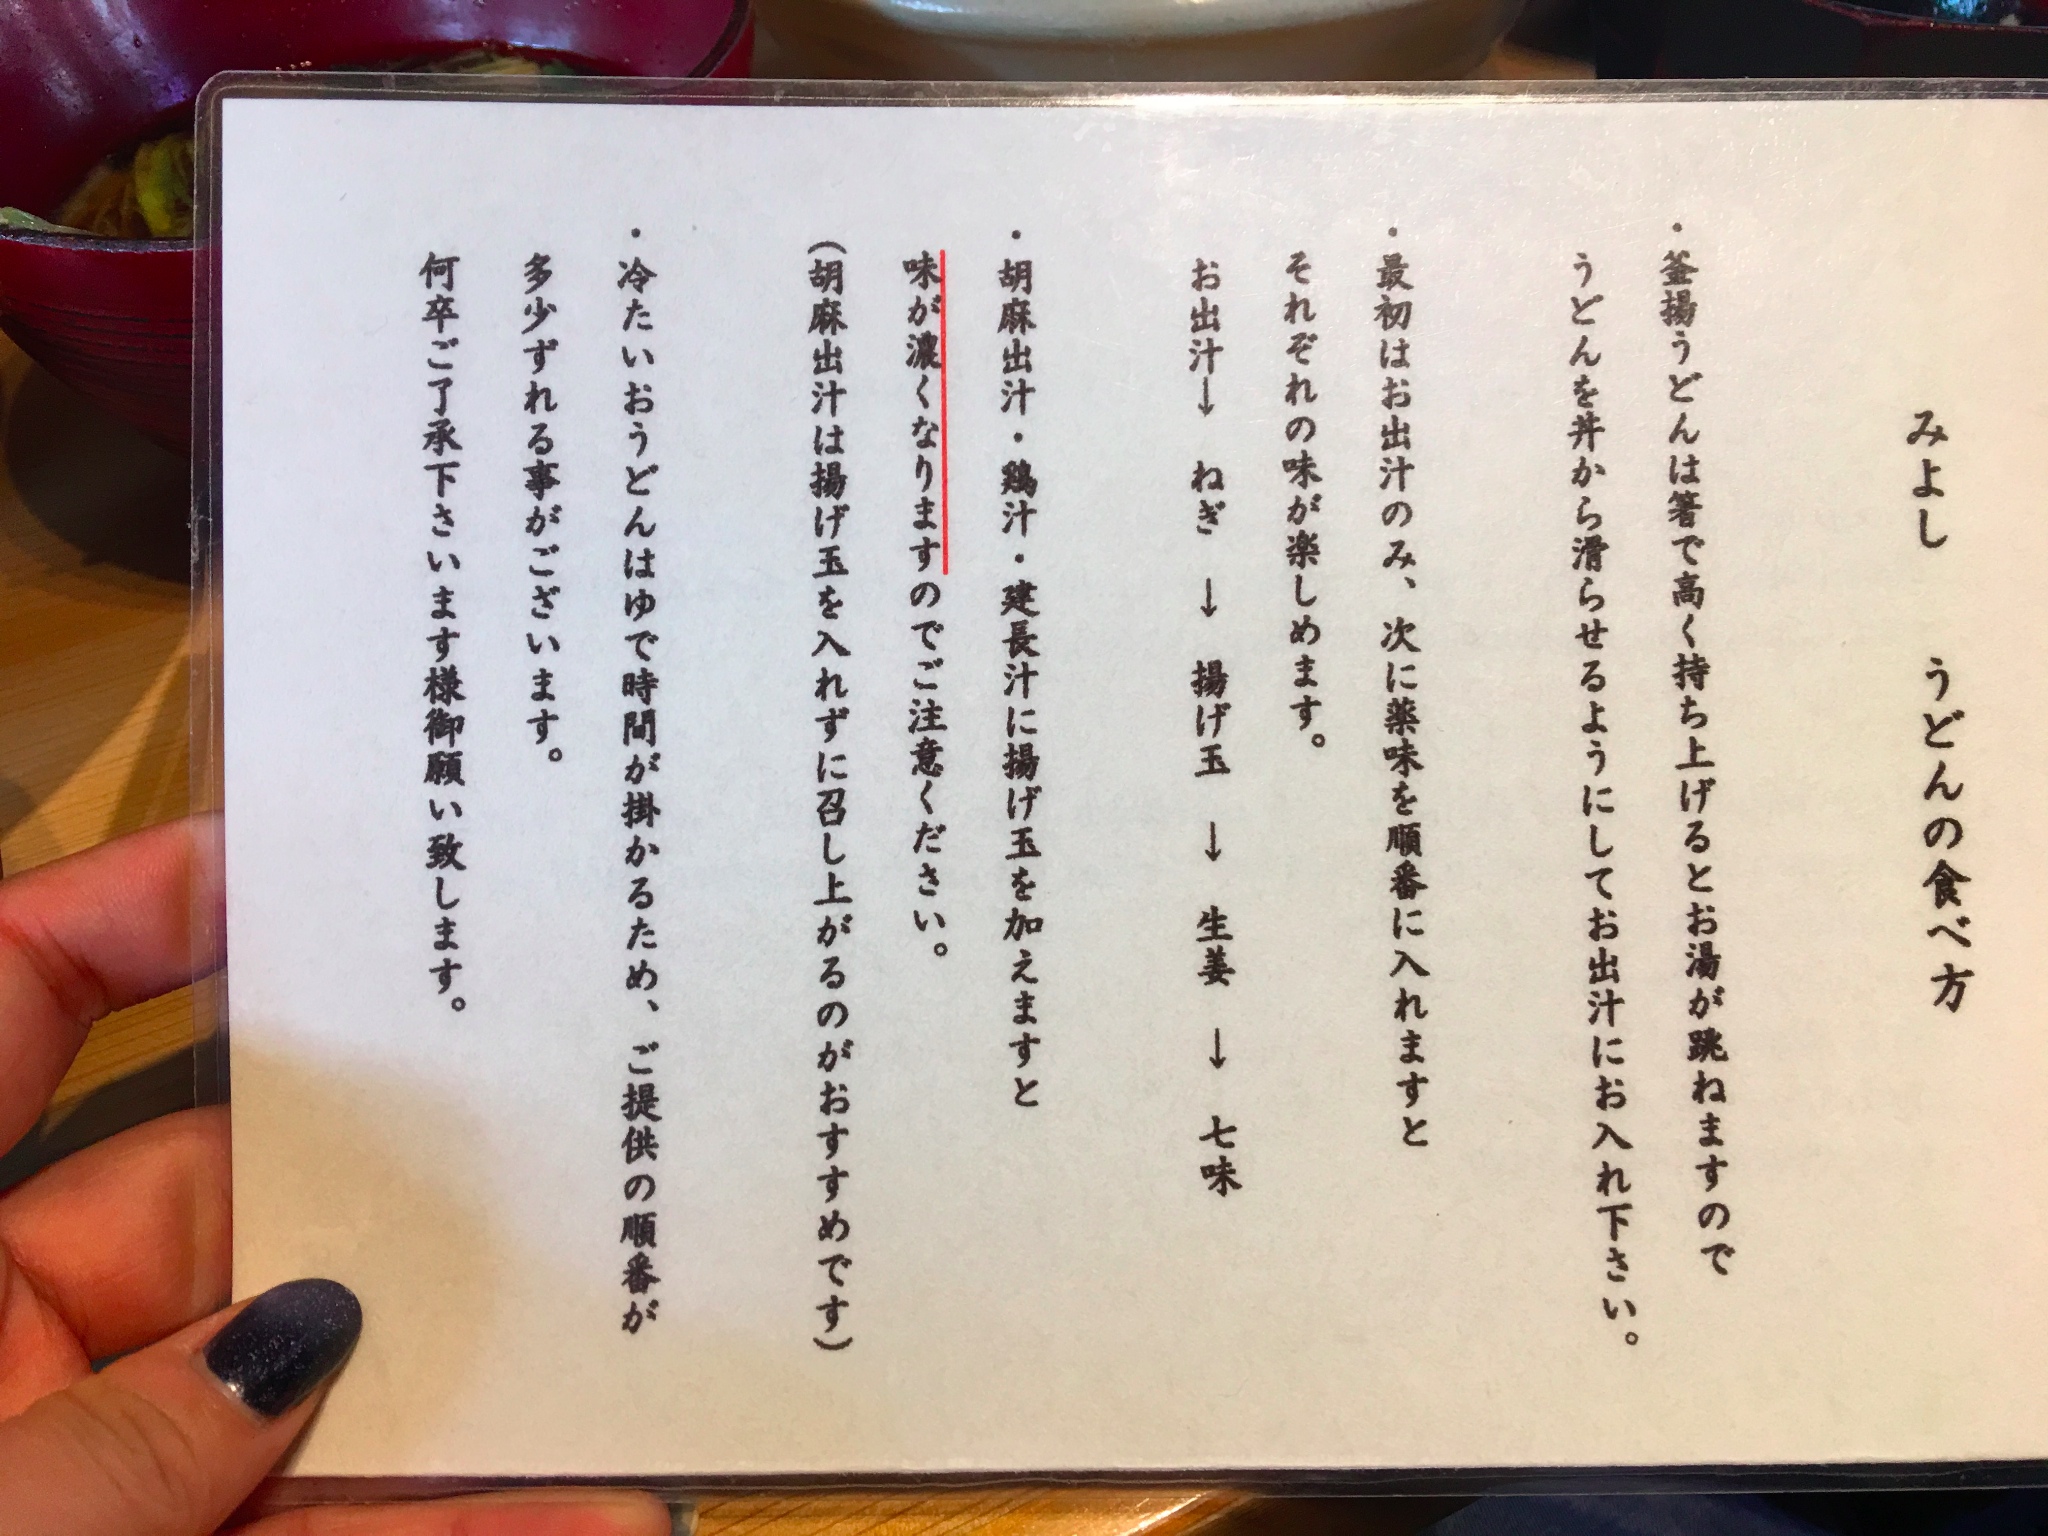 みよし　うどんの食べ方
・釜揚うどんは箸で高く持ち上げるとお湯が跳ねますので
うどんを丼から滑らせるようにしてお出汁にお入れ下さい。
・最初はお出汁のみ、次に薬味を順番に入れますと
それぞれの味が楽しめます。
お出汁→　ねぎ　→　揚げ玉　→　生姜　→　七味
・胡麻出汁・鶏汁・建長汁に揚げ玉を加えますと
味が濃くなりますのでご注意ください。
（胡麻出汁は揚げ玉を入れずに召し上がるのがおすすめです）
・冷たいおうどんはゆで時間が掛かるため、ご提供の順番が
多少ずれる事がございます。
何卒ご了承下さいます様御願い致します。